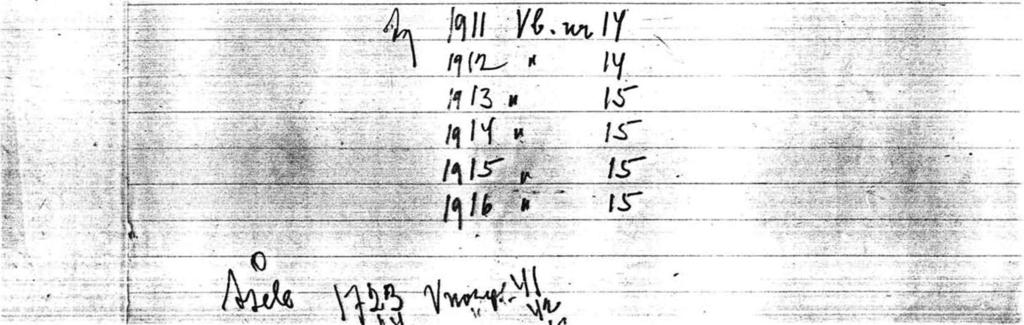 1911 Vb. nr 14
1912 " 14
1913 " 15
1914 " 15
1915 " 15
1916 " 15
Åsele 1723 41
42